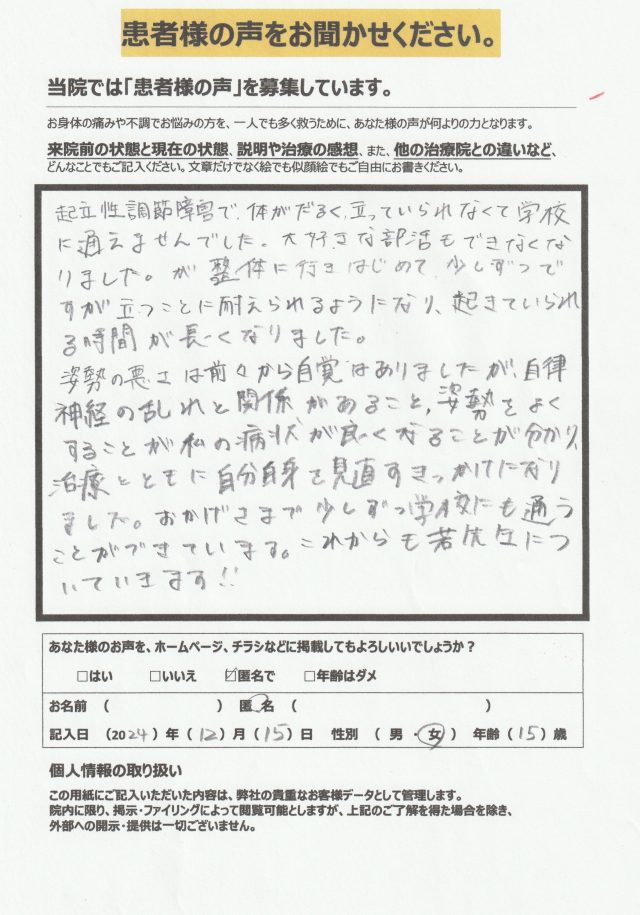 患者様の声をお聞かせください。
当院では「患者様の声」を募集しています。
お身体の痛みや不調でお悩みの方を、一人でも多く救うために、あなた様の声が何よりの力となります。
来院前の状態と現在の状態、説明や治療の感想、また、他の治療院との違いなど、
どんなことでもご記入ください。文章だけでなく絵でも似顔絵でもご自由にお書きください。
起立性調節障害で、体がだるく、立っていられなくて学校
に通えませんでした。大好きな部活もできなくな
りました。が整体に行きはじめて、少しずつで
すが立つことに耐えられるようになり、起きていられ
る時間が長くなりました。
姿勢の悪さは前々から自覚はありましたが、自律
神経の乱れと関係があること、姿勢をよく
することが私の病状が良くなることが分かり、
治療とともに自分自身を見直すきっかけになり
ました。おかげさまで少しずつ学校にも通う
ことができています。これからも若先生につ
いていきます!!
あなた様のお声を、ホームページ、チラシなどに掲載してもよろしいいでしょうか？
□はい □いいえ ☑匿名で □年齢はダメ
お名前 （ ） 匿 名 （ ）
記入日 （2024）年（12）月（15）日 性別 （ 男 ・ 女 ） 年齢（15）歳
個人情報の取り扱い
この用紙にご記入いただいた内容は、弊社の貴重なお客様データとして管理します。
院内に限り、掲示・ファイリングによって閲覧可能としますが、上記のご了解を得た場合を除き、
外部への開示・提供は一切ございません。